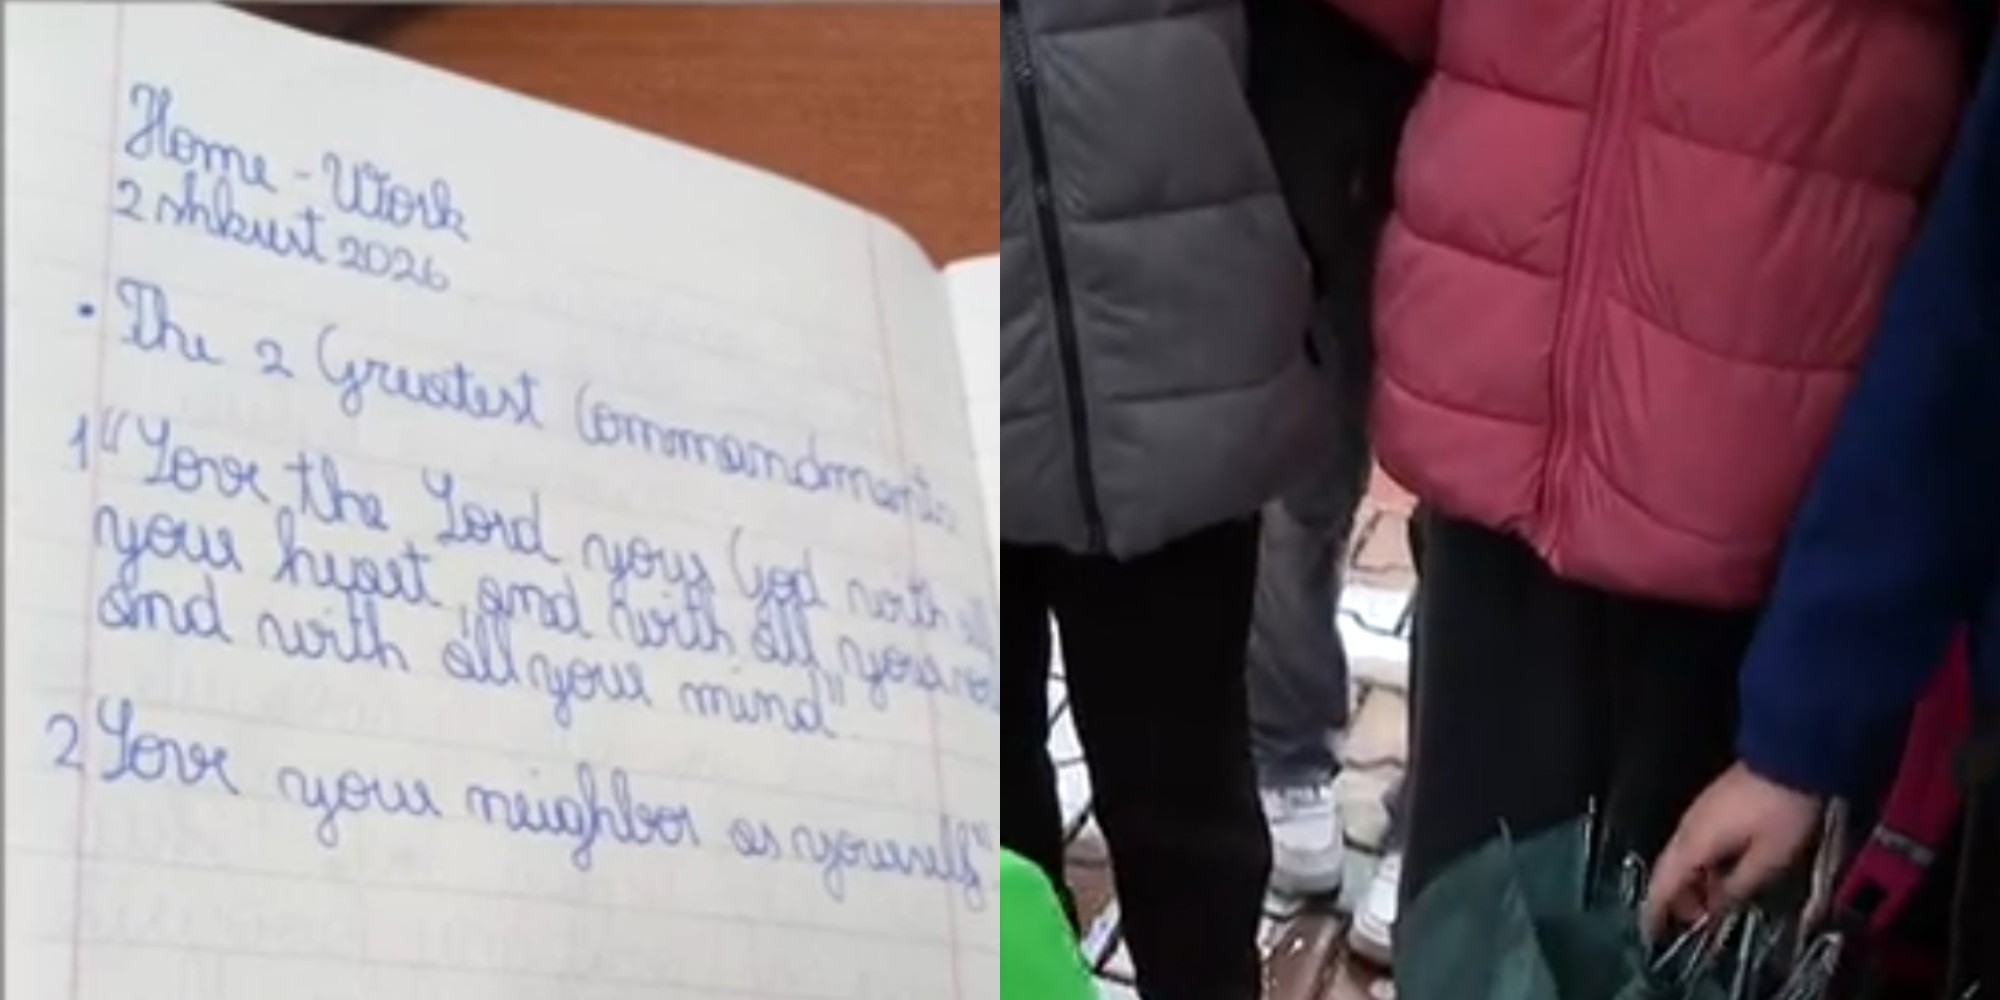 Home - Work
2 shkurt 2026
• The 2 Greatest Commandments
1 “Love the Lord your God with all
your heart, and with all your
and with all your mind”
2 Love your neighbor as yourself”